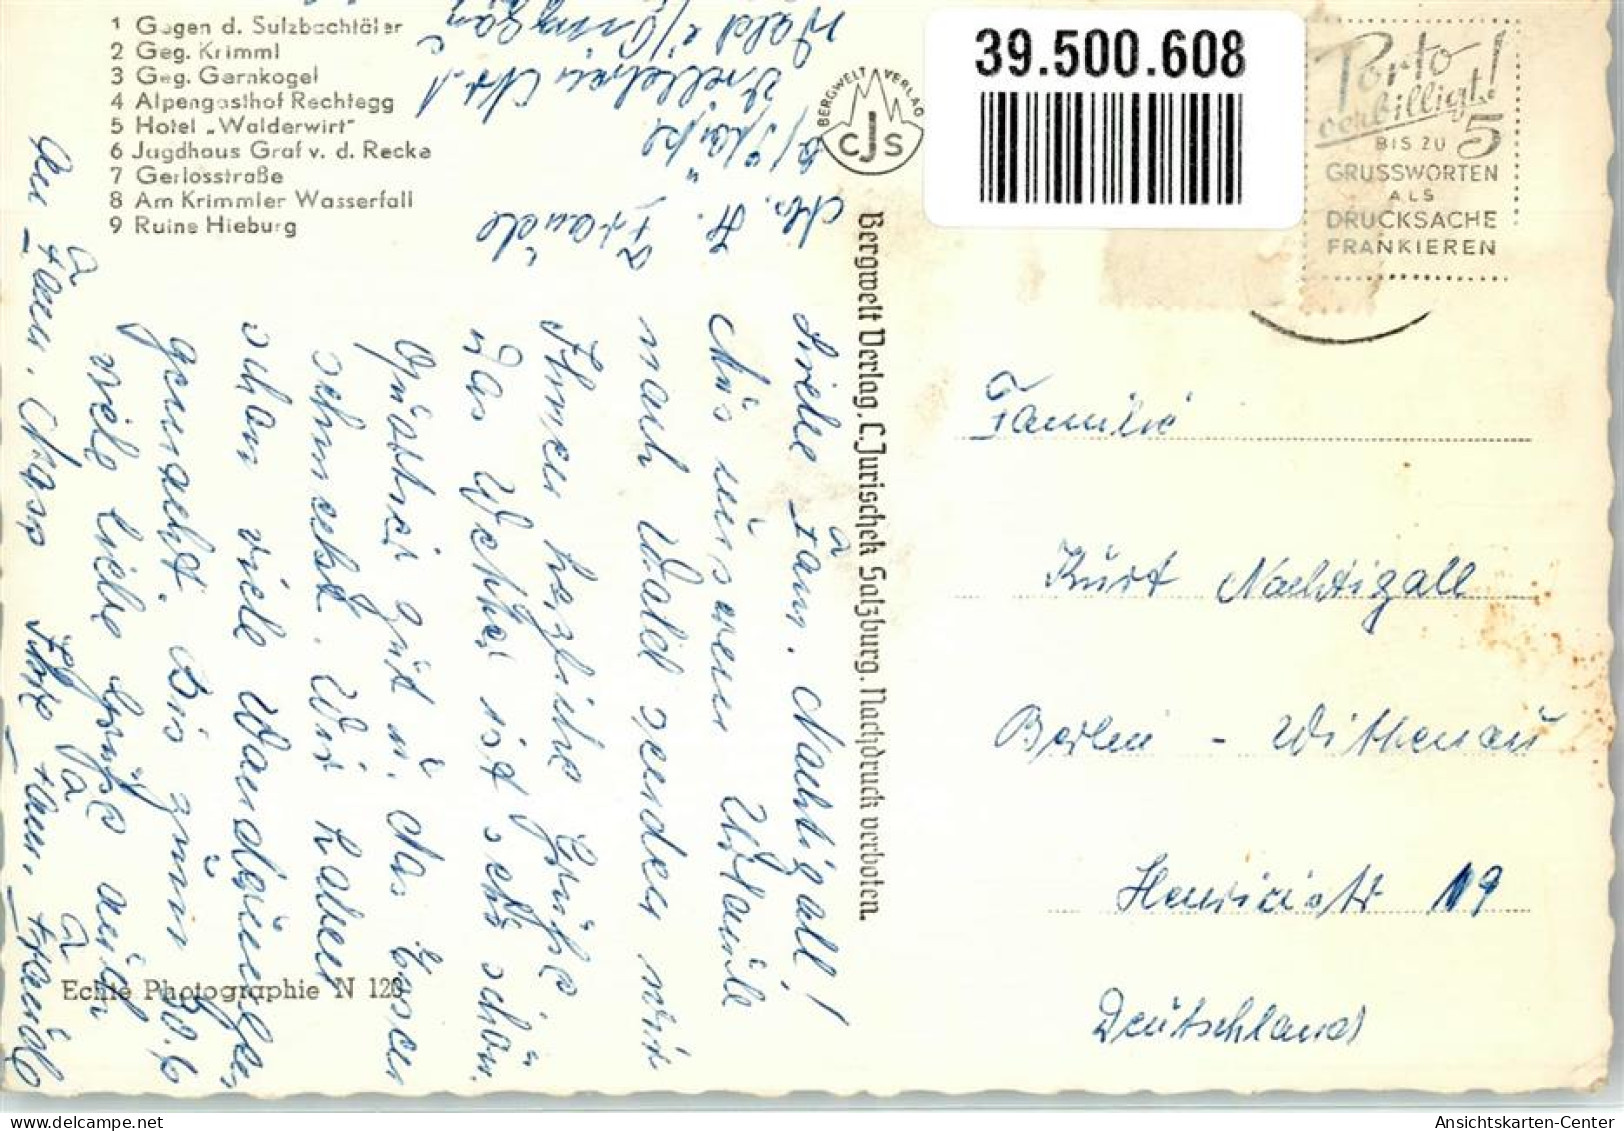 1 Gegen d. Sulzbachtäler
2 Geg. Krimml
3 Geg. Gernkogel
4 Alpengasthof Rechtegg
5 Hotel „Walderwirt"
6 Jagdhaus Graf v. d. Recke
7 Gerlosstraße
8 Am Krimmler Wasserfall
9 Ruine Hieburg
BERGWELT VERLAG
CJS
39.500.608
Porto
verbilligt!
BIS ZU 5
GRUSSWORTEN
ALS
DRUCKSACHE
FRANKIEREN
Abs. H. Fraude
Liebe Fam. Nachtigall!
Aus unserem Urlaub
nach Wald senden wir
Ihnen herzliche Grüße
Das Wetter ist sehr schön.
gut u. das Essen
schmeckt. Wir haben
schon viele Wanderungen
gemacht. Bis zum 30.6
viele liebe Grüße auch
an Fam.
Ihre Fam. Fraude
Bergwelt Verlag, C. Jurischek Salzburg. Nachdruck verboten.
Familie
Kurt Nachtigall
Berlin - Wittenau
Henricistr 19
Deutschland
Echte Photographie N 120
Ansichtskarten-Center